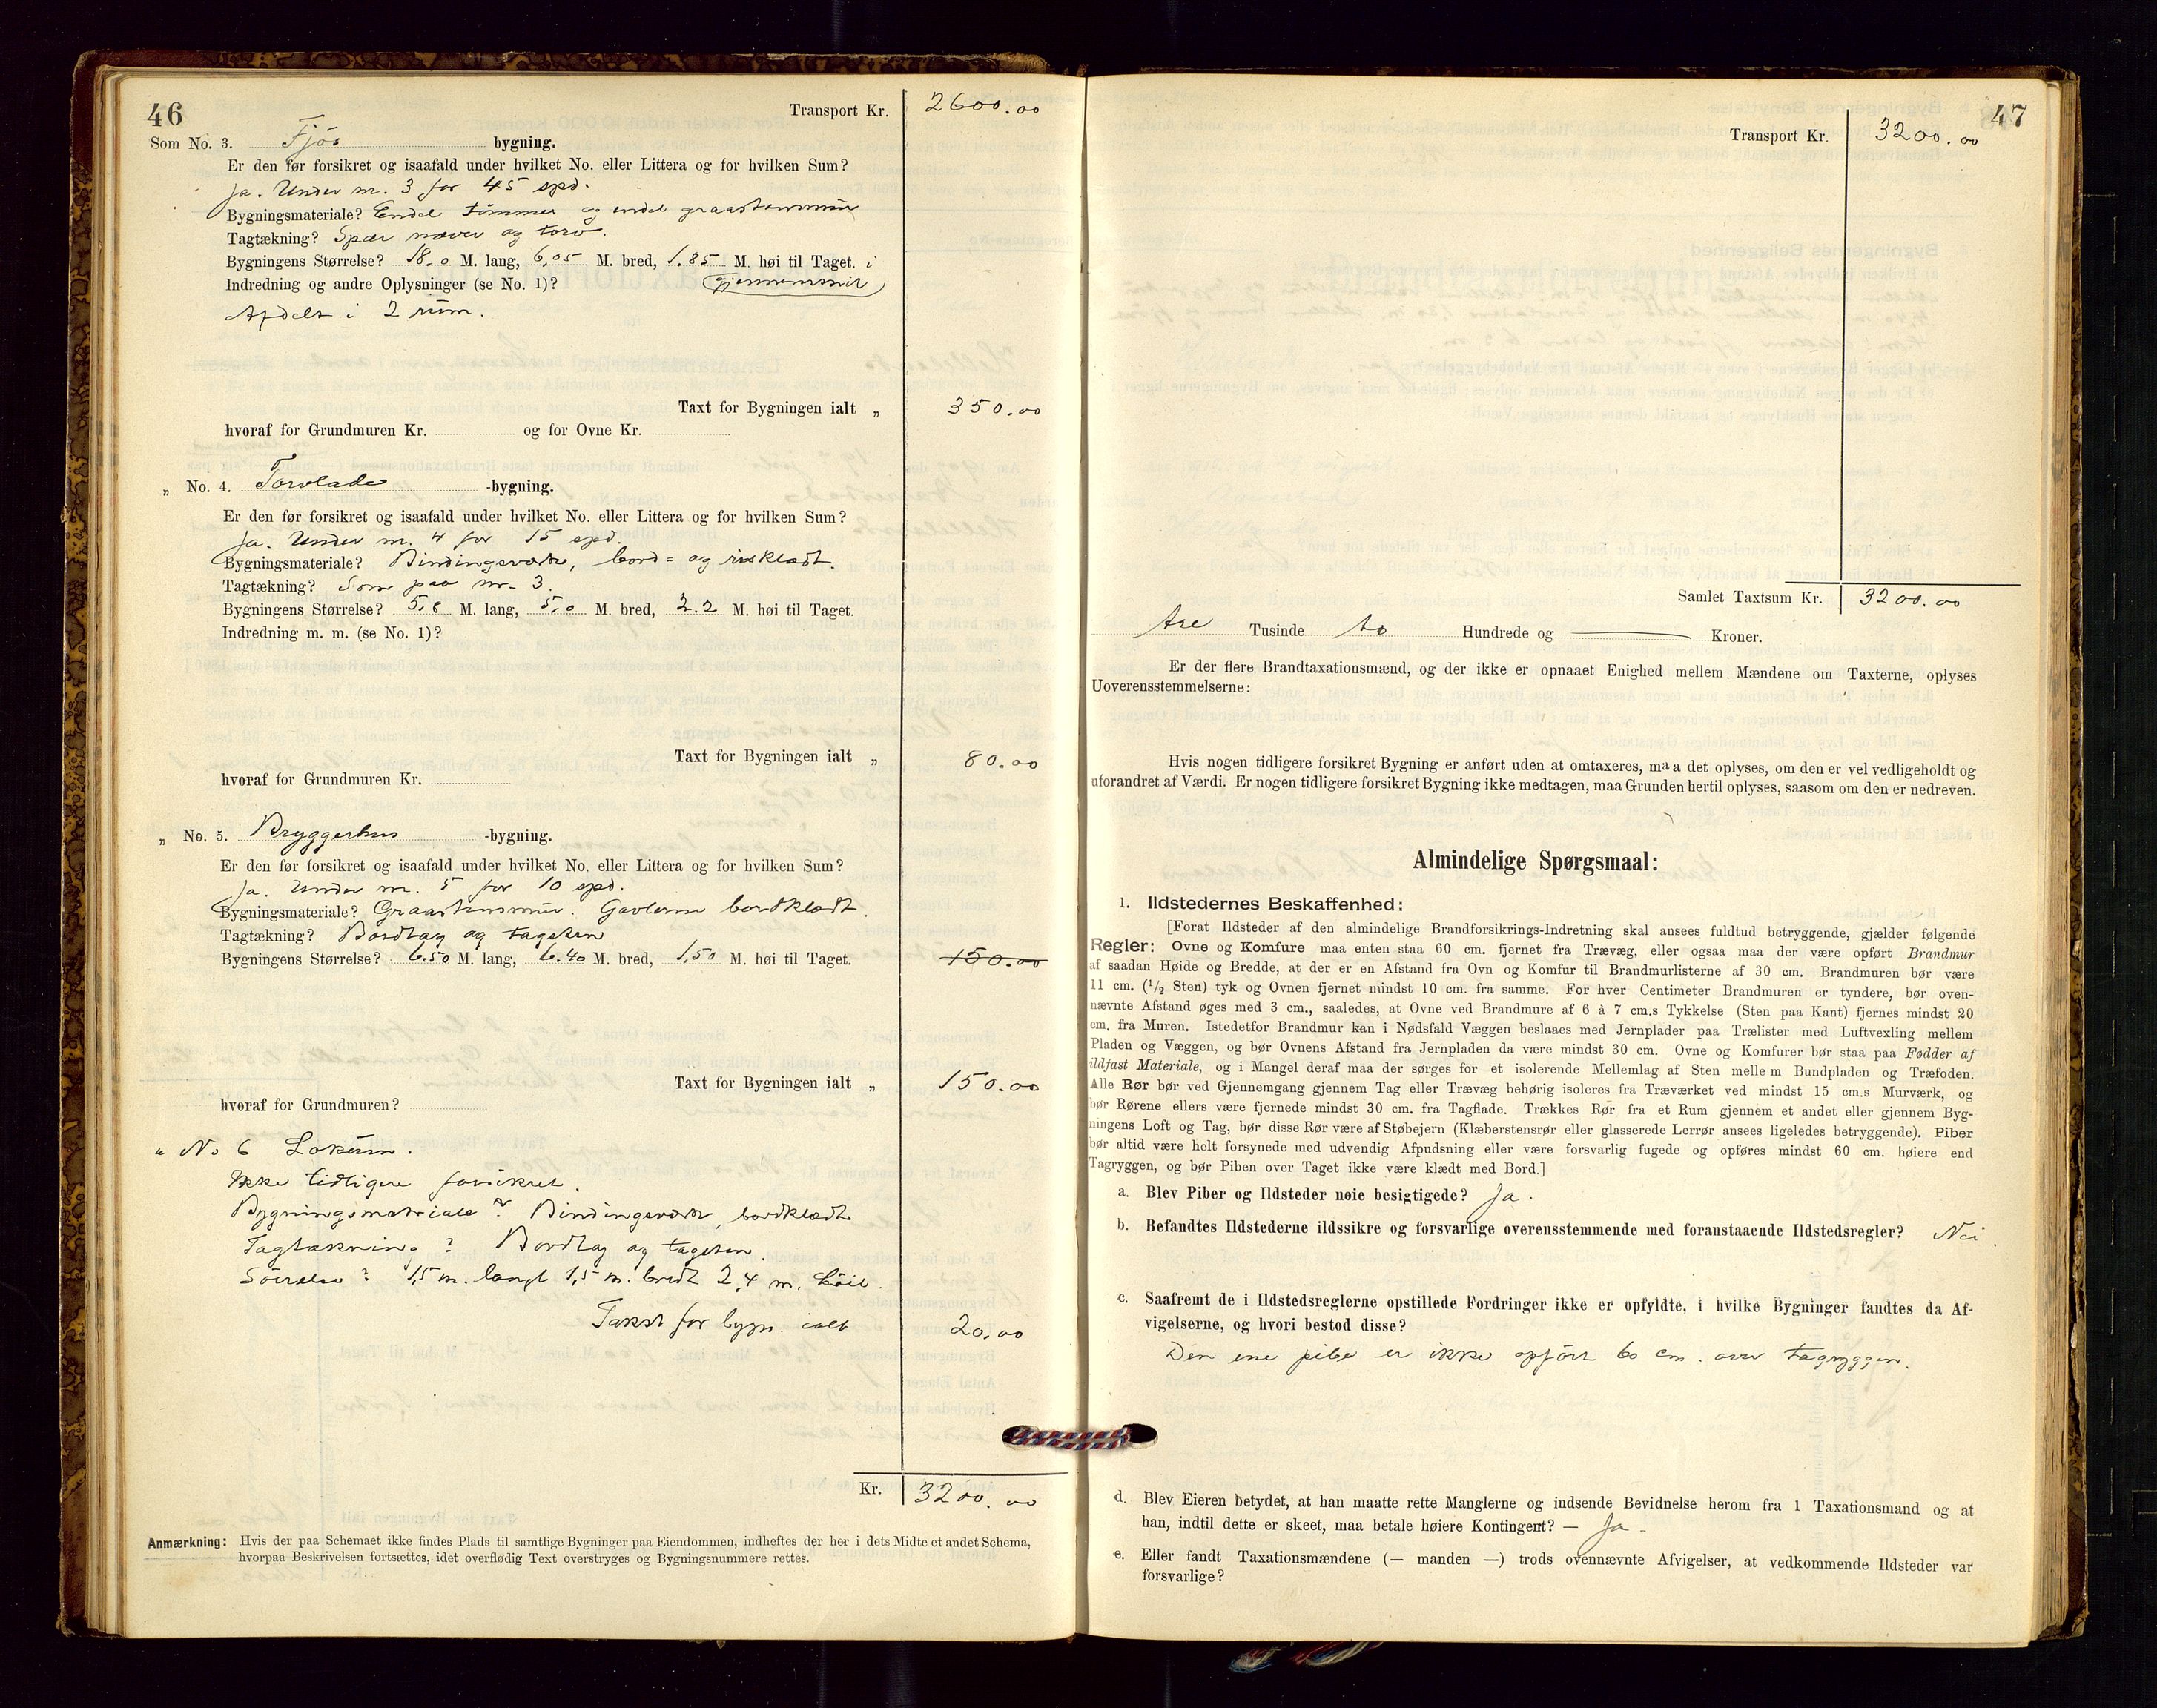 46
Transport Kr. 2600.00
Som No. 3. Fjös bygning.
Er den før forsikret og isaafald under hvilket No. eller Littera og for hvilken Sum?
Ja. Under nr. 3 for 45 spd.
Bygningsmateriale? Endel tömmer og endel graastensmur
Tagtækning? Spær næver og torv.
Bygningens Størrelse? 18.0 M. lang, 6,05 M. bred, 1.85 M. høi til Taget. i
Indredning og andre Oplysninger (se No. 1)? gjennemsnit
Afdelt i 2 rum.
Taxt for Bygningen ialt „ 350.00
hvoraf for Grundmuren Kr. og for Ovne Kr.
„ No. 4. Torvlade -bygning.
Er den før forsikret og isaafald under hvilket No. eller Littera og for hvilken Sum?
Ja. Under nr. 4 for 15 spd.
Bygningsmateriale? Bindingsverk, bord= og risklædt.
Tagtækning? Som paa nr. 3.
Bygningens Størrelse? 5,8 M. lang, 5,0 M. bred, 2.2 M. høi til Taget.
Indredning m. m. (se No. 1)?
Taxt for Bygningen ialt „ 80.00
hvoraf for Grundmuren Kr.
„ No. 5. Bryggerhus -bygning.
Er den før forsikret og isaafald under hvilket No. eller Littera og for hvilken Sum?
Ja. Under nr. 5 for 10 spd.
Bygningsmateriale? Graastensmur. Gavlerne bordklædt.
Tagtækning? Bordtag og tagsten
Bygningens Størrelse? 6.50 M. lang, 6.40 M. bred, 1,50 M. høi til Taget. 150.00
Taxt for Bygningen ialt „ 150.00
hvoraf for Grundmuren?
„ No 6 Lokum.
Ikke tidligere forsikret.
Bygningsmateriale? Bindingsverk, bordklædt
Tagtækning? Bordtag og tagsten.
Störrelse? 1,5 m. langt 1,5 m. bredt 2,4 m. höit.
Takst for bygn. ialt 20,00
Kr. 3200.00
Anmærkning: Hvis der paa Schemaet ikke findes Plads til samtlige Bygninger paa Eiendommen, indheftes der her i dets Midte et andet Schema,
hvorpaa Beskrivelsen fortsættes, idet overflødig Text overstryges og Bygningsnummere rettes.
47
Transport Kr. 3200.00
Samlet Taxtsum Kr. 3200.00
tre Tusinde to Hundrede og Kroner.
Er der flere Brandtaxationsmænd, og der ikke er opnaaet Enighed mellem Mændene om Taxterne, oplyses
Uoverensstemmelserne:
Hvis nogen tidligere forsikret Bygning er anført uden at omtaxeres, maa det oplyses, om den er vel vedligeholdt og
uforandret af Værdi. Er nogen tidligere forsikret Bygning ikke medtagen, maa Grunden hertil oplyses, saasom om den er nedreven.
Almindelige Spørgsmaal:
1. Ildstedernes Beskaffenhed:
[Forat Ildsteder af den almindelige Brandforsikrings-Indretning skal ansees fuldtud betryggende, gjælder følgende
Regler: Ovne og Komfure maa enten staa 60 cm. fjernet fra Trævæg, eller ogsaa maa der være opført Brandmur
af saadan Høide og Bredde, at der er en Afstand fra Ovn og Komfur til Brandmurlisterne af 30 cm. Brandmuren bør være
11 cm. (1/2 Sten) tyk og Ovnen fjernet mindst 10 cm. fra samme. For hver Centimeter Brandmuren er tyndere, bør oven-
nævnte Afstand øges med 3 cm., saaledes, at Ovne ved Brandmure af 6 à 7 cm.s Tykkelse (Sten paa Kant) fjernes mindst 20
cm. fra Muren. Istedetfor Brandmur kan i Nødsfald Væggen beslaaes med Jernplader paa Trælister med Luftvexling mellem
Pladen og Væggen, og bør Ovnens Afstand fra Jernpladen da være mindst 30 cm. Ovne og Komfurer bør staa paa Fødder af
ildfast Materiale, og i Mangel deraf maa der sørges for et isolerende Mellemlag af Sten mellem Bundpladen og Træfoden.
Alle Rør bør ved Gjennemgang gjennem Tag eller Trævæg behørig isoleres fra Træværket ved mindst 15 cm.s Murværk, og
bør Rørene ellers være fjernede mindst 30 cm. fra Tagflade. Trækkes Rør fra et Rum gjennem et andet eller gjennem Byg-
ningens Loft og Tag, bør disse Rør være af Støbejern (Klæberstensrør eller glasserede Lerrør ansees ligeledes betryggende). Piber
bør altid være helt forsynede med udvendig Afpudsning eller være forsvarlig fugede og opføres mindst 60 cm. høiere end
Tagryggen, og bør Piben over Taget ikke være klædt med Bord.]
a. Blev Piber og Ildsteder nøie besigtigede? Ja.
b. Befandtes Ildstederne ildssikre og forsvarlige overensstemmende med foranstaaende Ildstedsregler? Nei.
c. Saafremt de i Ildstedsreglerne opstillede Fordringer ikke er opfyldte, i hvilke Bygninger fandtes da Af-
vigelserne, og hvori bestod disse?
Den ene pibe er ikke opfört 60 cm. over tagryggen.
d. Blev Eieren betydet, at han maatte rette Manglerne og indsende Bevidnelse herom fra 1 Taxationsmand og at
han, indtil dette er skeet, maa betale høiere Kontingent? — Ja.
e. Eller fandt Taxationsmændene (— manden —) trods ovennævnte Afvigelser, at vedkommende Ildsteder var
forsvarlige?